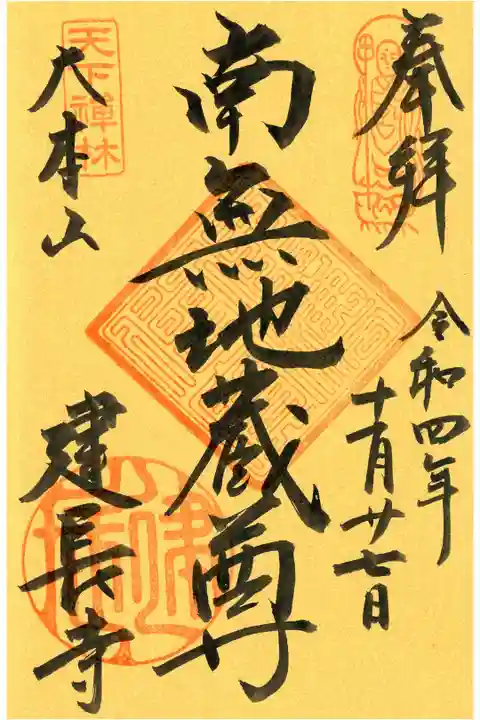 奉拝
令和四年
十一月廿七日
南無地蔵尊
天下禪林
大本山
建長寺